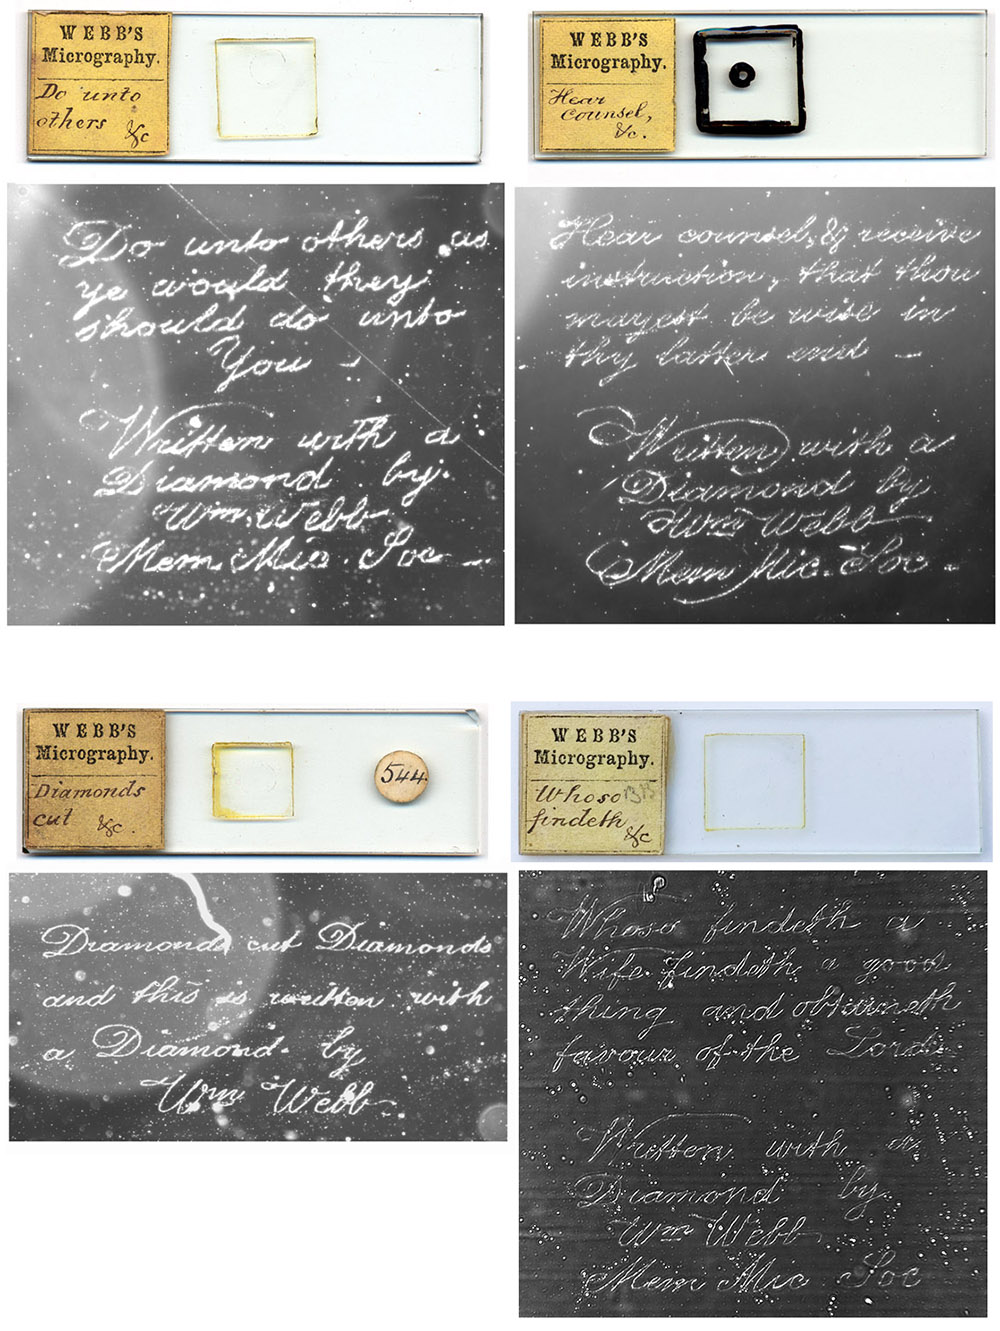 WEBB'S
Micrography.
Do unto
others &c
WEBB'S
Micrography.
Hear
Counsel,
&c.
Do unto others as
ye would they
should do unto
You —
Written with a
Diamond by
Wm. Webb
Mem. Mic. Soc —
Hear counsel, & receive
instruction, that thou
mayest be wise in
thy latter end —
Written with a
Diamond by
Wm Webb
Mem Mic. Soc -
WEBB'S
Micrography.
Diamonds
cut &c.
544
WEBB'S
Micrography.
Whoso
findeth
&c
Diamonds cut Diamonds
and this is written with
a Diamond by
Wm Webb
Whoso findeth a
Wife findeth a good
thing and obtaineth
favour of the Lord
Written with a
Diamond by
Wm Webb
Mem Mic Soc